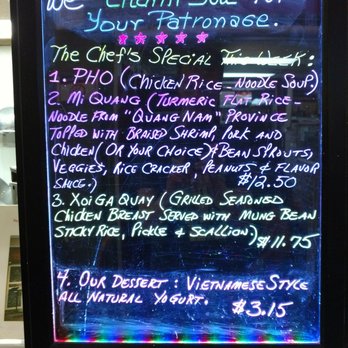 We Thank You for
Your Patronage.
The Chef's Special This Week:
1. PHO (Chicken Rice-Noodle Soup)
2. Mi Quang (Turmeric Flat Rice-
Noodle from "Quang Nam" Province
Topped with Braised Shrimp, Pork and
Chicken (Or Your Choice) & Bean Sprouts,
Veggies, Rice Cracker, Peanuts & Flavor
Sauce.) $12.50
3. Xoi Ga Quay (Grilled Seasoned
Chicken Breast Served with Mung Bean
Sticky Rice, Pickle & Scallion.) $11.75
4. Our Dessert: Vietnamese Style
All Natural Yogurt. $3.15